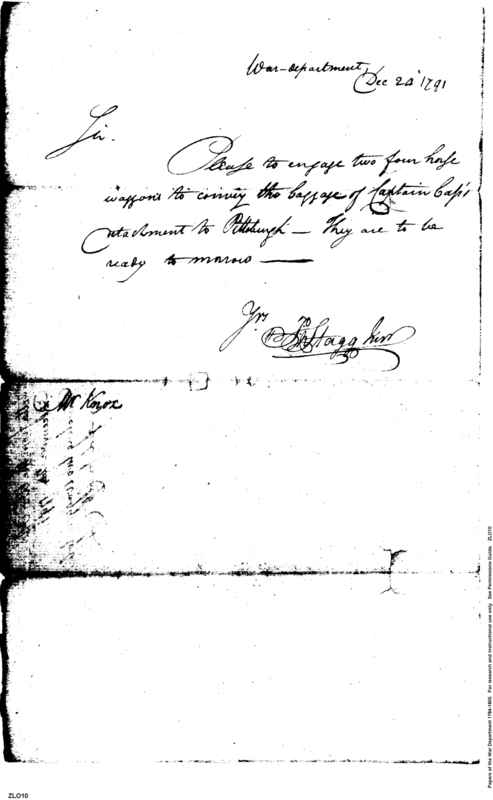 War-department,
Dec 24 1791
Sir.
Please to engage two four horse
waggons to convey the baggage of Captain Cass's
detachment to Pittsburgh — They are to be
ready to morrow —
Yrs
Jno Stagg Junr
Mr Knox
Papers of the War Department 1784-1800. For research and instructional use only. See Permissions Guide. ZLO10
ZLO10